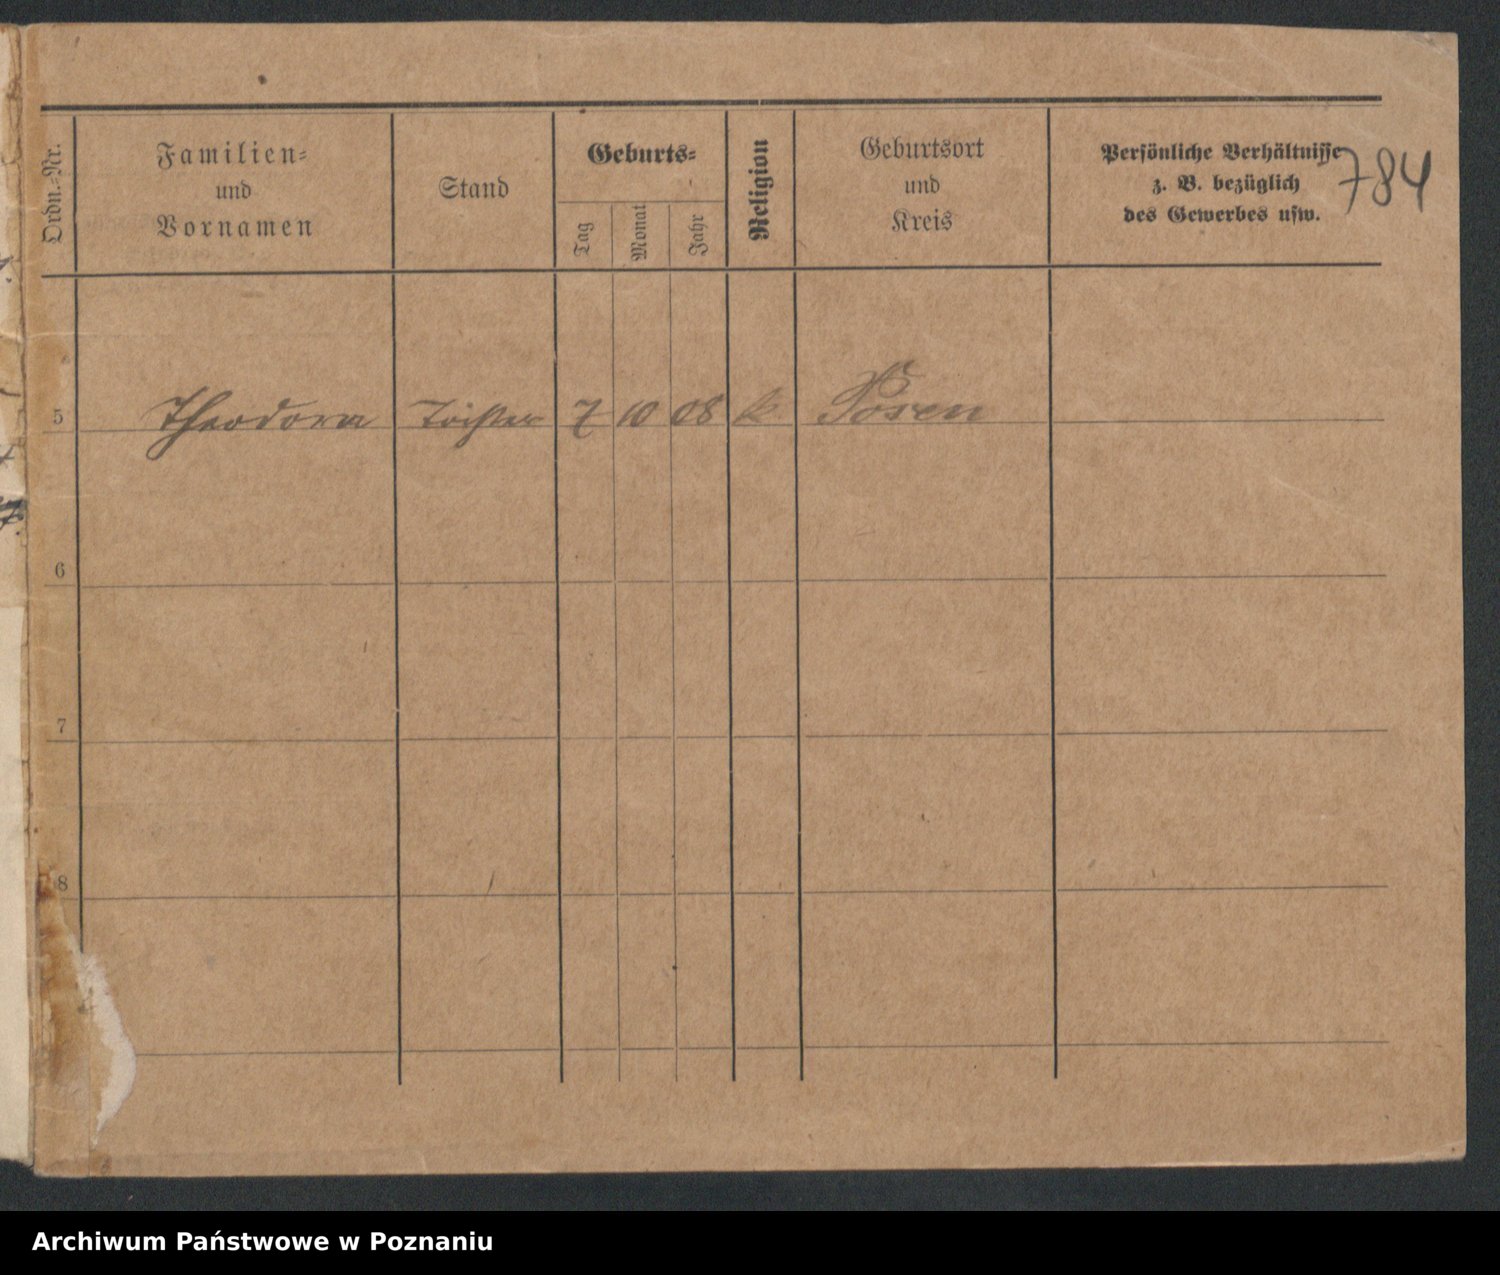 784
Ordn.-Nr.
Familien-
und
Vornamen
Stand
Geburts-
Tag
Monat
Jahr
Religion
Geburtsort
und
Kreis
Persönliche Verhältnisse
z. B. bezüglich
des Gewerbes usw.
5 Theodora Tochter 7 10 08 k Posen
6
7
8
Archiwum Państwowe w Poznaniu